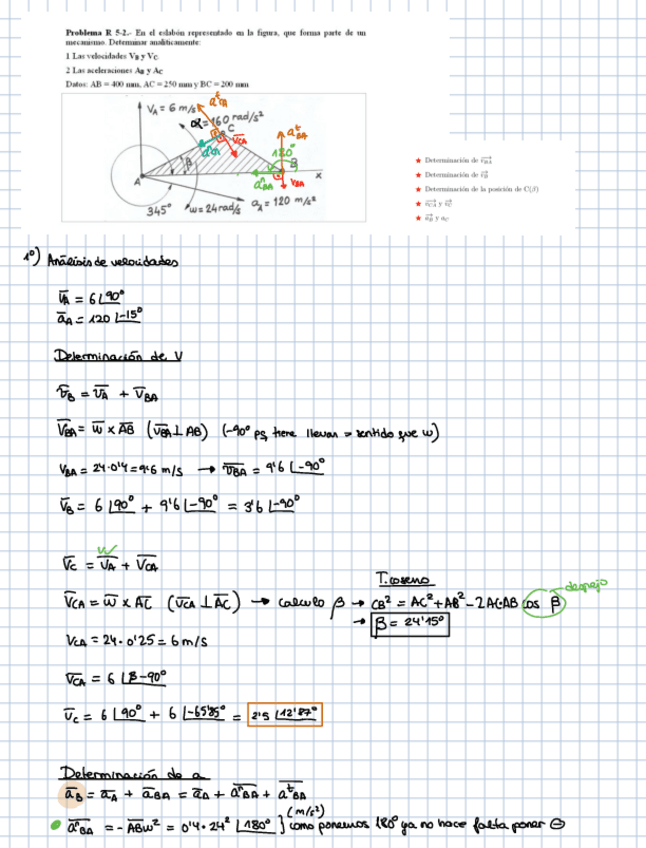 Problema R 5-2.- En el eslabón representado en la figura, que forma parte de un
mecanismo. Determinar analíticamente:
1 Las velocidades VB y VC
2 Las aceleraciones AB y AC
Datos: AB = 400 mm, AC = 250 mm y BC = 200 mm
VA = 6 m/s
aᵗCA
α = 160 rad/s²
C
VCA
aⁿCA
aᵗBA
180º
β
B
A
aⁿBA
VBA
x
345º
w = 24 rad/s
aA = 120 m/s²
★ Determinación de vBA
★ Determinación de vB
★ Determinación de la posición de C(β)
★ vCA y vC
★ aB y aC
1º) Análisis de velocidades
VA = 6 ∟90º
aA = 120 ∟-15º
Determinación de V
VB = VA + VBA
VBA = w x AB (VBA ⊥ AB) (-90º pq tiene llevar = sentido que w)
VBA = 24·0'4 = 9'6 m/s → VBA = 9'6 ∟-90º
VB = 6 ∟90º + 9'6 ∟-90º = 3'6 ∟-90º
VC = VA + VCA
T. coseno
despejo
VCA = w x AC (VCA ⊥ AC) → calculo β → CB² = AC² + AB² - 2AC·AB cos β
→ β = 24'15º
VCA = 24·0'25 = 6 m/s
VCA = 6 ∟β-90º
VC = 6 ∟90º + 6 ∟-65'85º = 2'5 ∟12'87º
Determinación de a
aB = aA + aBA = aA + aⁿBA + aᵗBA
(m/s²)
aⁿBA = -ABw² = 0'4·24² ∟180º } como ponemos 180º ya no hace falta poner ⊖